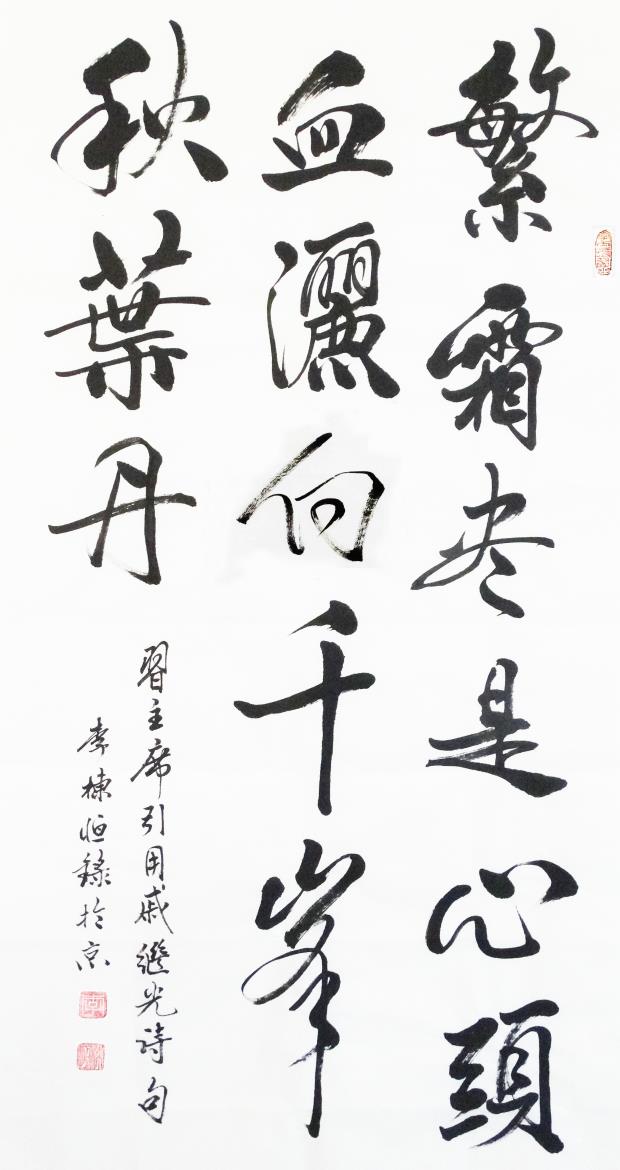 繁霜尽是心頭
血灑向千峯
秋葉丹
習主席引用戚繼光詩句
李棟恒錄於京